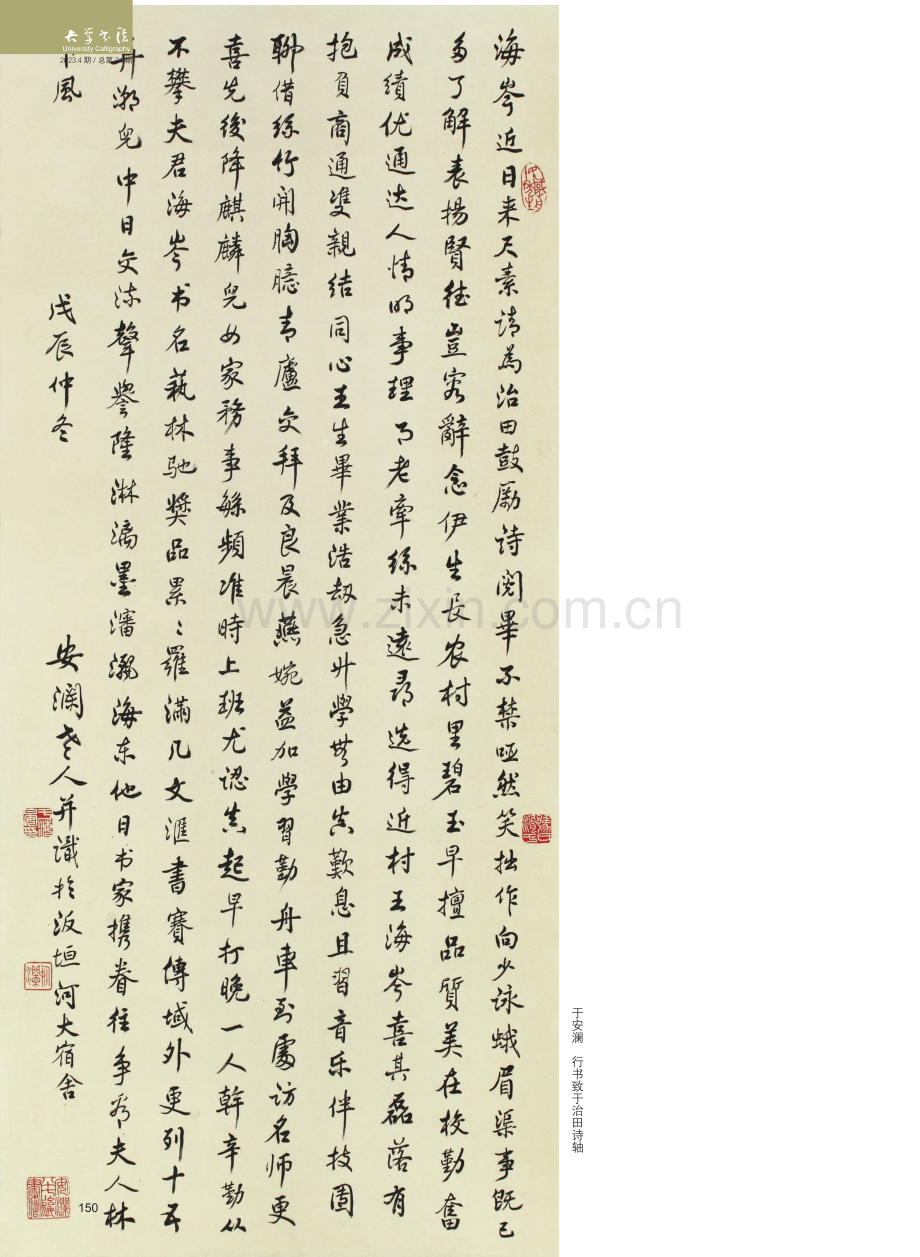 大学书法
University Calligraphy
2023.4 期 / 总第
海岑近日来尺素请为治田鼓励诗阅毕不禁哑然笑拙作向少咏蛾眉渠事既已
多了解表扬贤德岂容辞念伊生长农村里碧玉早擅品质美在校勤奋
成绩优通达人情明事理乃老牵丝未远寻选得近村王海岑喜其磊落有
抱负商通双亲结同心王生毕业浩劫急升学无由真叹息且习音乐伴技圃
聊借丝竹开胸臆青庐交拜及良晨燕婉益加学习勤舟车到处访名师更
喜先后降麒麟儿女家务事繁频准时上班尤认真起早打晚一人干辛勤从
不攀夫君海岑书名艺林驰奖品累々罗满几文汇书赛传域外更列十五
弄潮儿中日交流声誉隆淋漓墨沈洒海东他日书家携眷往争看夫人林
下风
戊辰仲冬
安澜老人并识于汳垣河大宿舍
www.zixin.com.cn
于安澜 行书致于治田诗轴
150